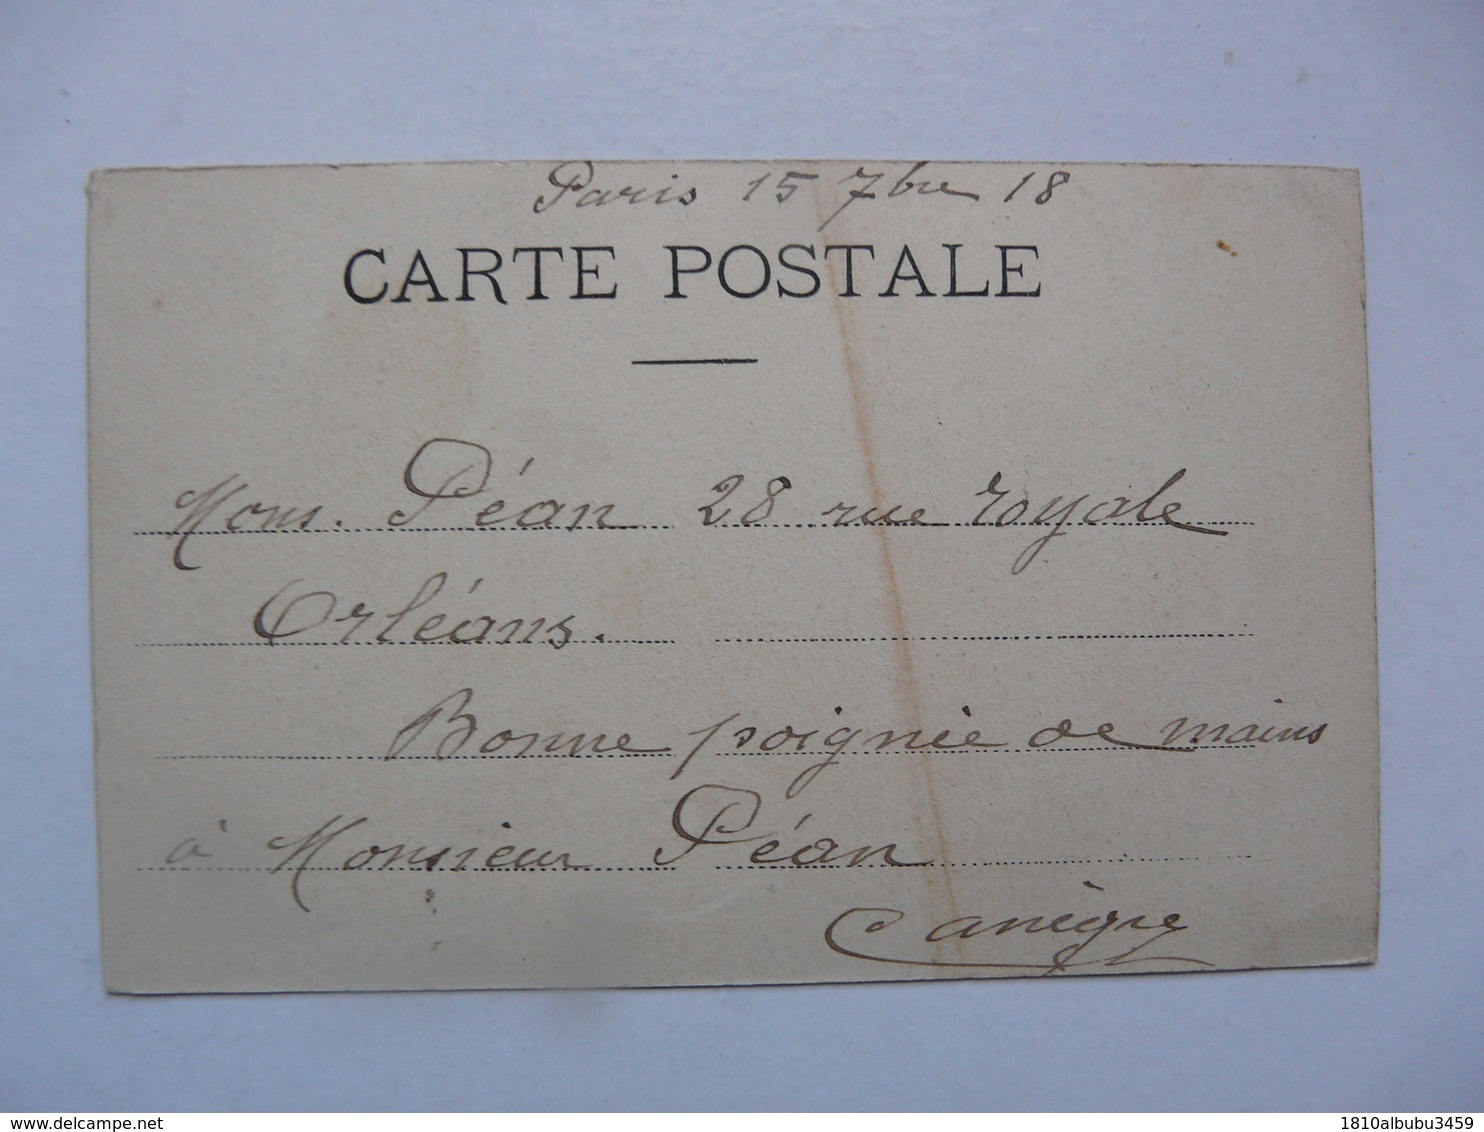 Paris 15 7bre 18
CARTE POSTALE
Mons. Péan 28 rue royale
Orléans.
Bonne poignée de mains
à Monsieur Péan
Canègre
delcampe.net
1810albubu3459